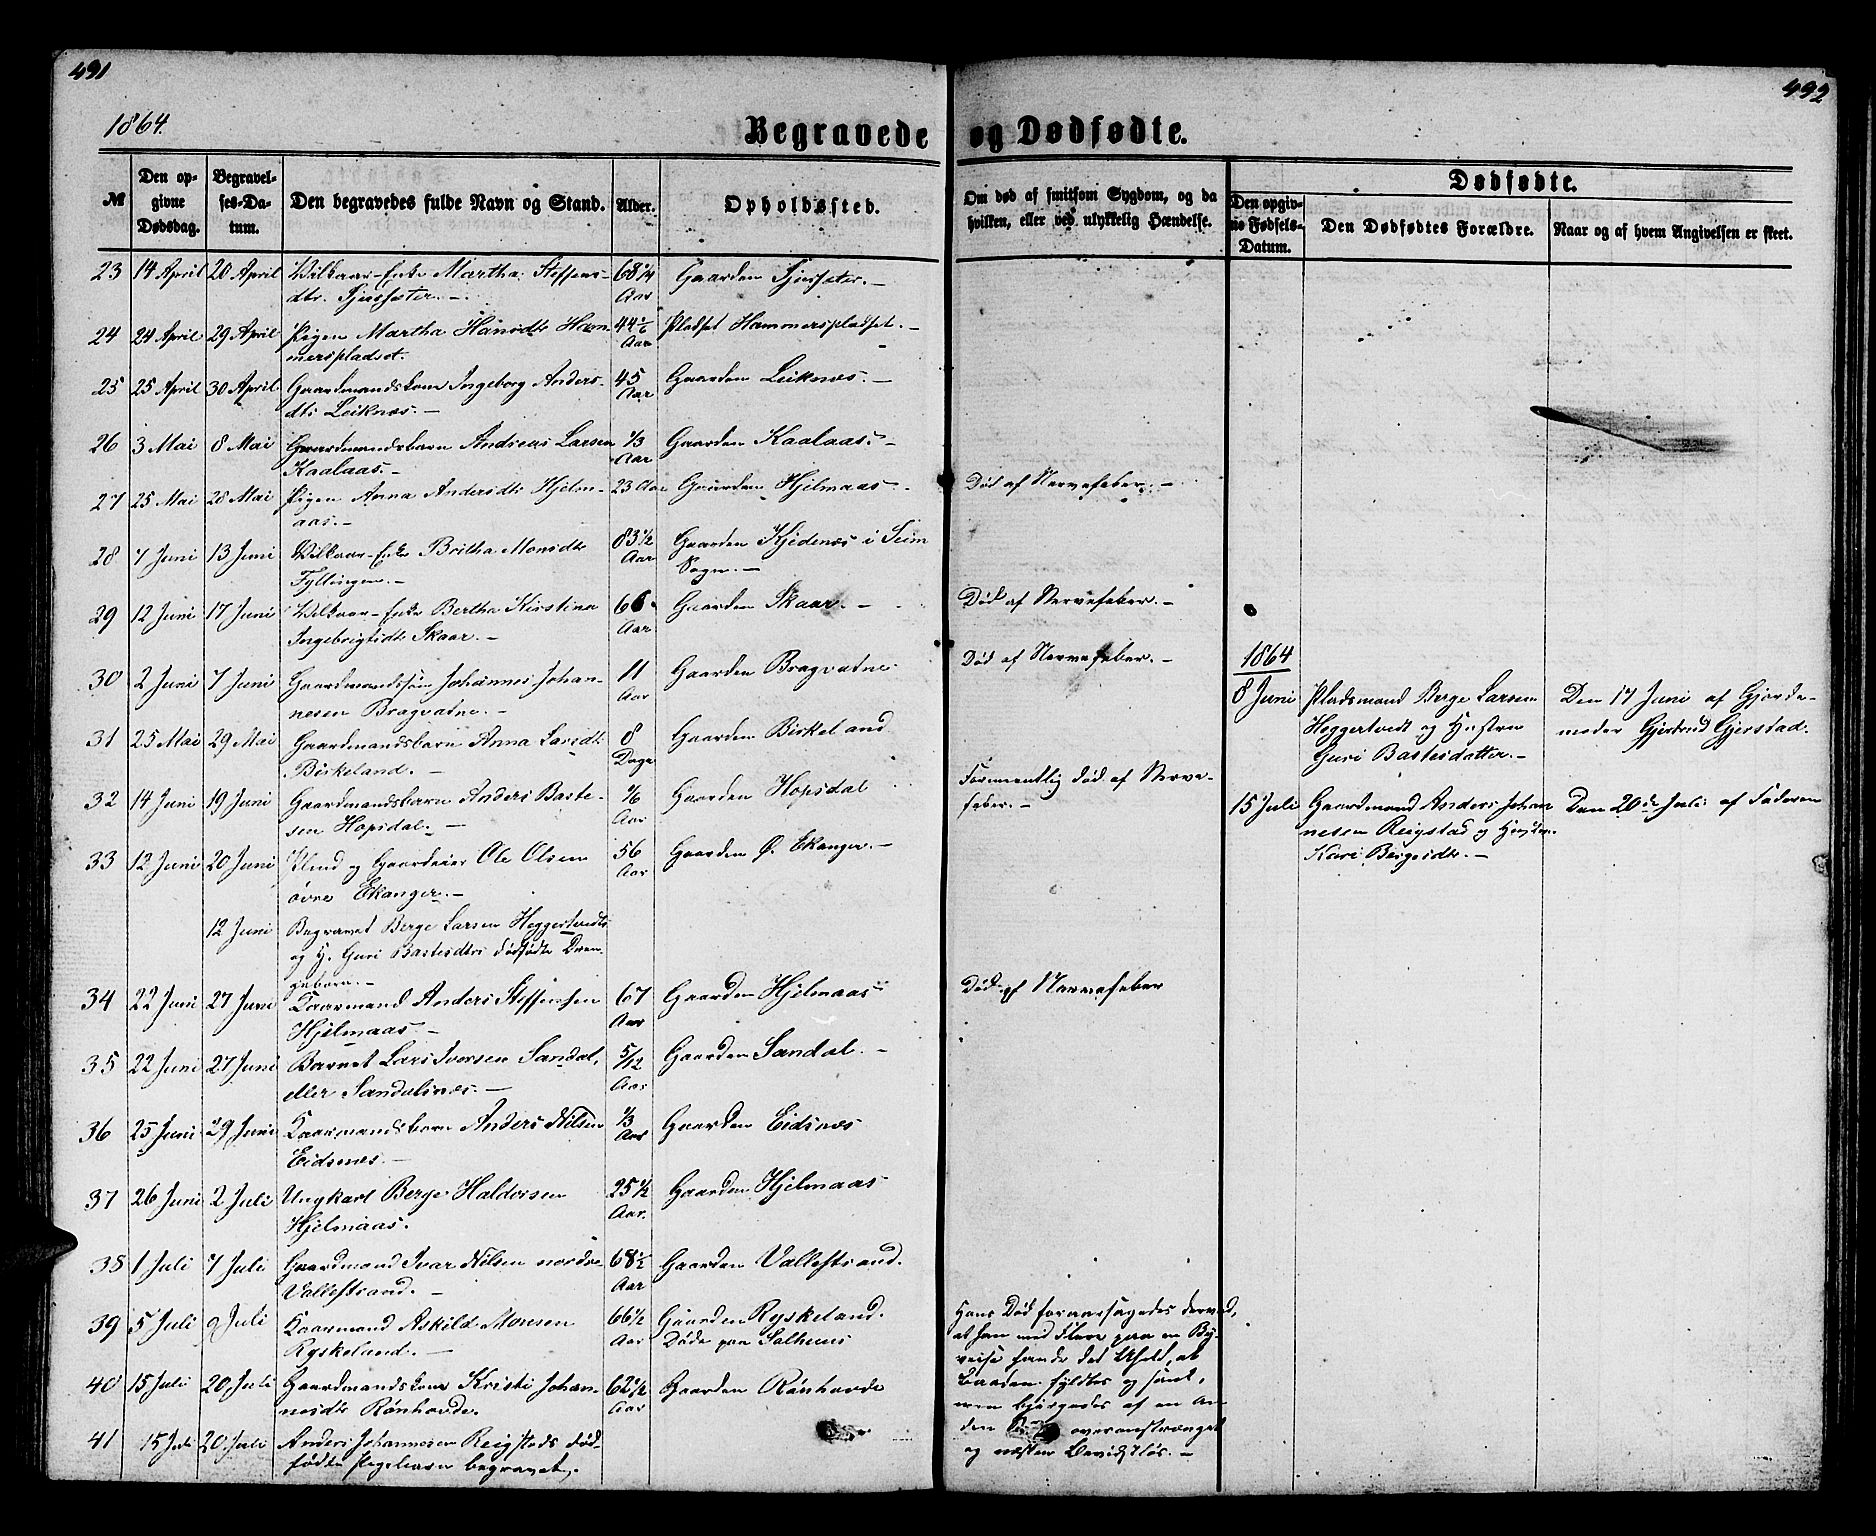 491
492
1864.
Begravede og Dødfødte.
№
Den opgivne Dødsdag.
Begravelses-Datum.
Den begravedes fulde Navn og Stand.
Alder.
Opholdssted.
Om død af smitsom Sygdom, og da hvilken, eller ved ulykkelig Hændelse.
Dødfødte.
Den opgivne Fødsels-Datum.
Den Dødfødtes Forældre.
Naar og af hvem Angivelsen er skeet.
23 14 April 20 April Vilkaar-Enke Martha Steffens- 68 1/4 Gaarden Tjursæter.-
dtr. Tjursæter.- Aar
24 24 April 29 April Pigen Martha Hansdtr Ham- 44 1/6 Pladset Hammerspladset.-
merspladset. Aar
25 25 April 30 April Gaardmandskone Ingeborg Anders- 45 Gaarden Leiknes.-
dtr Leiknes.- Aar
26 3 Mai 8 Mai Gaardmandsbarn Andreas Larsen 1/3 Gaarden Kaalaas.-
Kaalaas.- Aar
27 25 Mai 28 Mai Pigen Anna Andersdtr Hjelm- 23 Aar Gaarden Hjelmaas.- Død af Nervefeber.-
aas.-
28 7 Juni 13 Juni Vilkaar-Enke Britha Monsdtr 83 1/2 Gaarden Kjedenes i Seim
Fyllingen.- Aar Sogn.-
29 12 Juni 17 Juni Vilkaar-Enke Bertha Kirstina 66 Gaarden Skaar.- Død af Nervefeber.-
Ingebrigtsdtr Skaar.- Aar
30 2 Juni 7 Juni Gaardmandssøn Johannes Johan- 11 Gaarden Bragvatne Død af Nervefeber.-
nesen Bragvatne.- Aar
31 25 Mai 29 Mai Gaardmandsbarn Anna Larsdtr 8 Gaarden Birkeland
Birkeland.- Dage
32 14 Juni 19 Juni Gaardmandsbarn Anders Baste- 1/6 Gaarden Hopsdal Formentlig død af Nerve-
sen Hopsdal.- Aar feber.-
33 12 Juni 20 Juni og Gaardeier Ole Olsen 56 Gaarden Ø. Ekanger.-
øvre Ekanger.- Aar
12 Juni Begravet Berge Larsen Heggertvedts
og H. Guri Bastesdtrs dødfødte Dren-
gebarn.-
34 22 Juni 27 Juni Kaarmand Anders Steffensen 67 Gaarden Hjelmaas Død af Nervefeber
Hjelmaas.- Aar
35 22 Juni 27 Juni Barnet Lars Iversen Sandal, 5/12 Gaarden Sandal.-
eller Sandalsnes.- Aar
36 25 Juni 29 Juni Kaarmandsbarn Anders Nilsen 1/3 Gaarden Eidsnes
Eidsnes.- Aar
37 26 Juni 2 Juli Ungkarl Berge Haldorsen 25 1/2 Gaarden Hjelmaas
Hjelmaas. Aar.
38 1 Juli 7 Juli Gaardmand Ivar Nilsen nordre 68 1/2 Gaarden Vallestrand.
Vallestrand.- Aar
39 5 Juli 9 Juli Kaarmand Askild Monsen 66 1/2 Gaarden Ryskeland.
Ryskeland.- Aar Døde paa Salhuus
40 15 Juli 20 Juli Gaardmandskone Kristi Johan- 62 1/2 Gaarden Rønhovde
nesdtr Rønhovde. Aar
41 15 Juli 20 Juli Anders Johannesen Reigstads død-
fødte Pigebarn begravet.
Hans Død foraarsagedes derved,
at han med Flere paa en By-
reise havde det Uheld, at
Baaden fyldtes og sank,
men bjergedes af en An-
den overanstrænget
og næsten Bevidstløs.-
1864
8 Juni Pladsmand Berge Larsen Den 17 Juni af Gjorde-
Heggertvedt og Hustru moder Gjertrud Gjerstad.
Guri Bastesdatter.-
15 Juli Gaardmand Anders Johan- Den 20de Juli af Faderen
nesen Reigstad og Hustru
Kari Bergesdtr.-